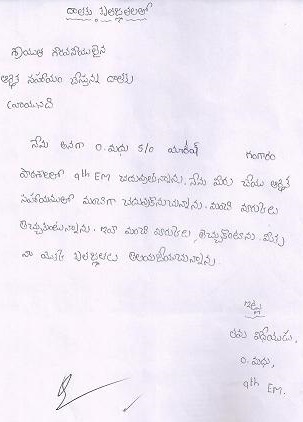 దాతకు కృతజ్ఞతలతో
గౌరవనీయులైన
ఆర్థిక సహాయం చేస్తున్న దాతకు
నేను అనగా O. మధు S/O యాదేష్ గంగారం
పాఠశాలలో 9th EM చదువుతున్నాను. నేను మీరు చేయు ఆర్థిక
సహాయముతో మంచిగా చదువుకొనుచున్నాను. మంచి మార్కులు
తెచ్చుకుంటున్నాను. ఇంకా మంచి మార్కులు తెచ్చుకొంటాను. మీకు
నా యొక్క కృతజ్ఞతలు తెలియజేయుచున్నాను.
ఇట్లు
తమ విధేయుడు,
O. మధు,
9th EM.